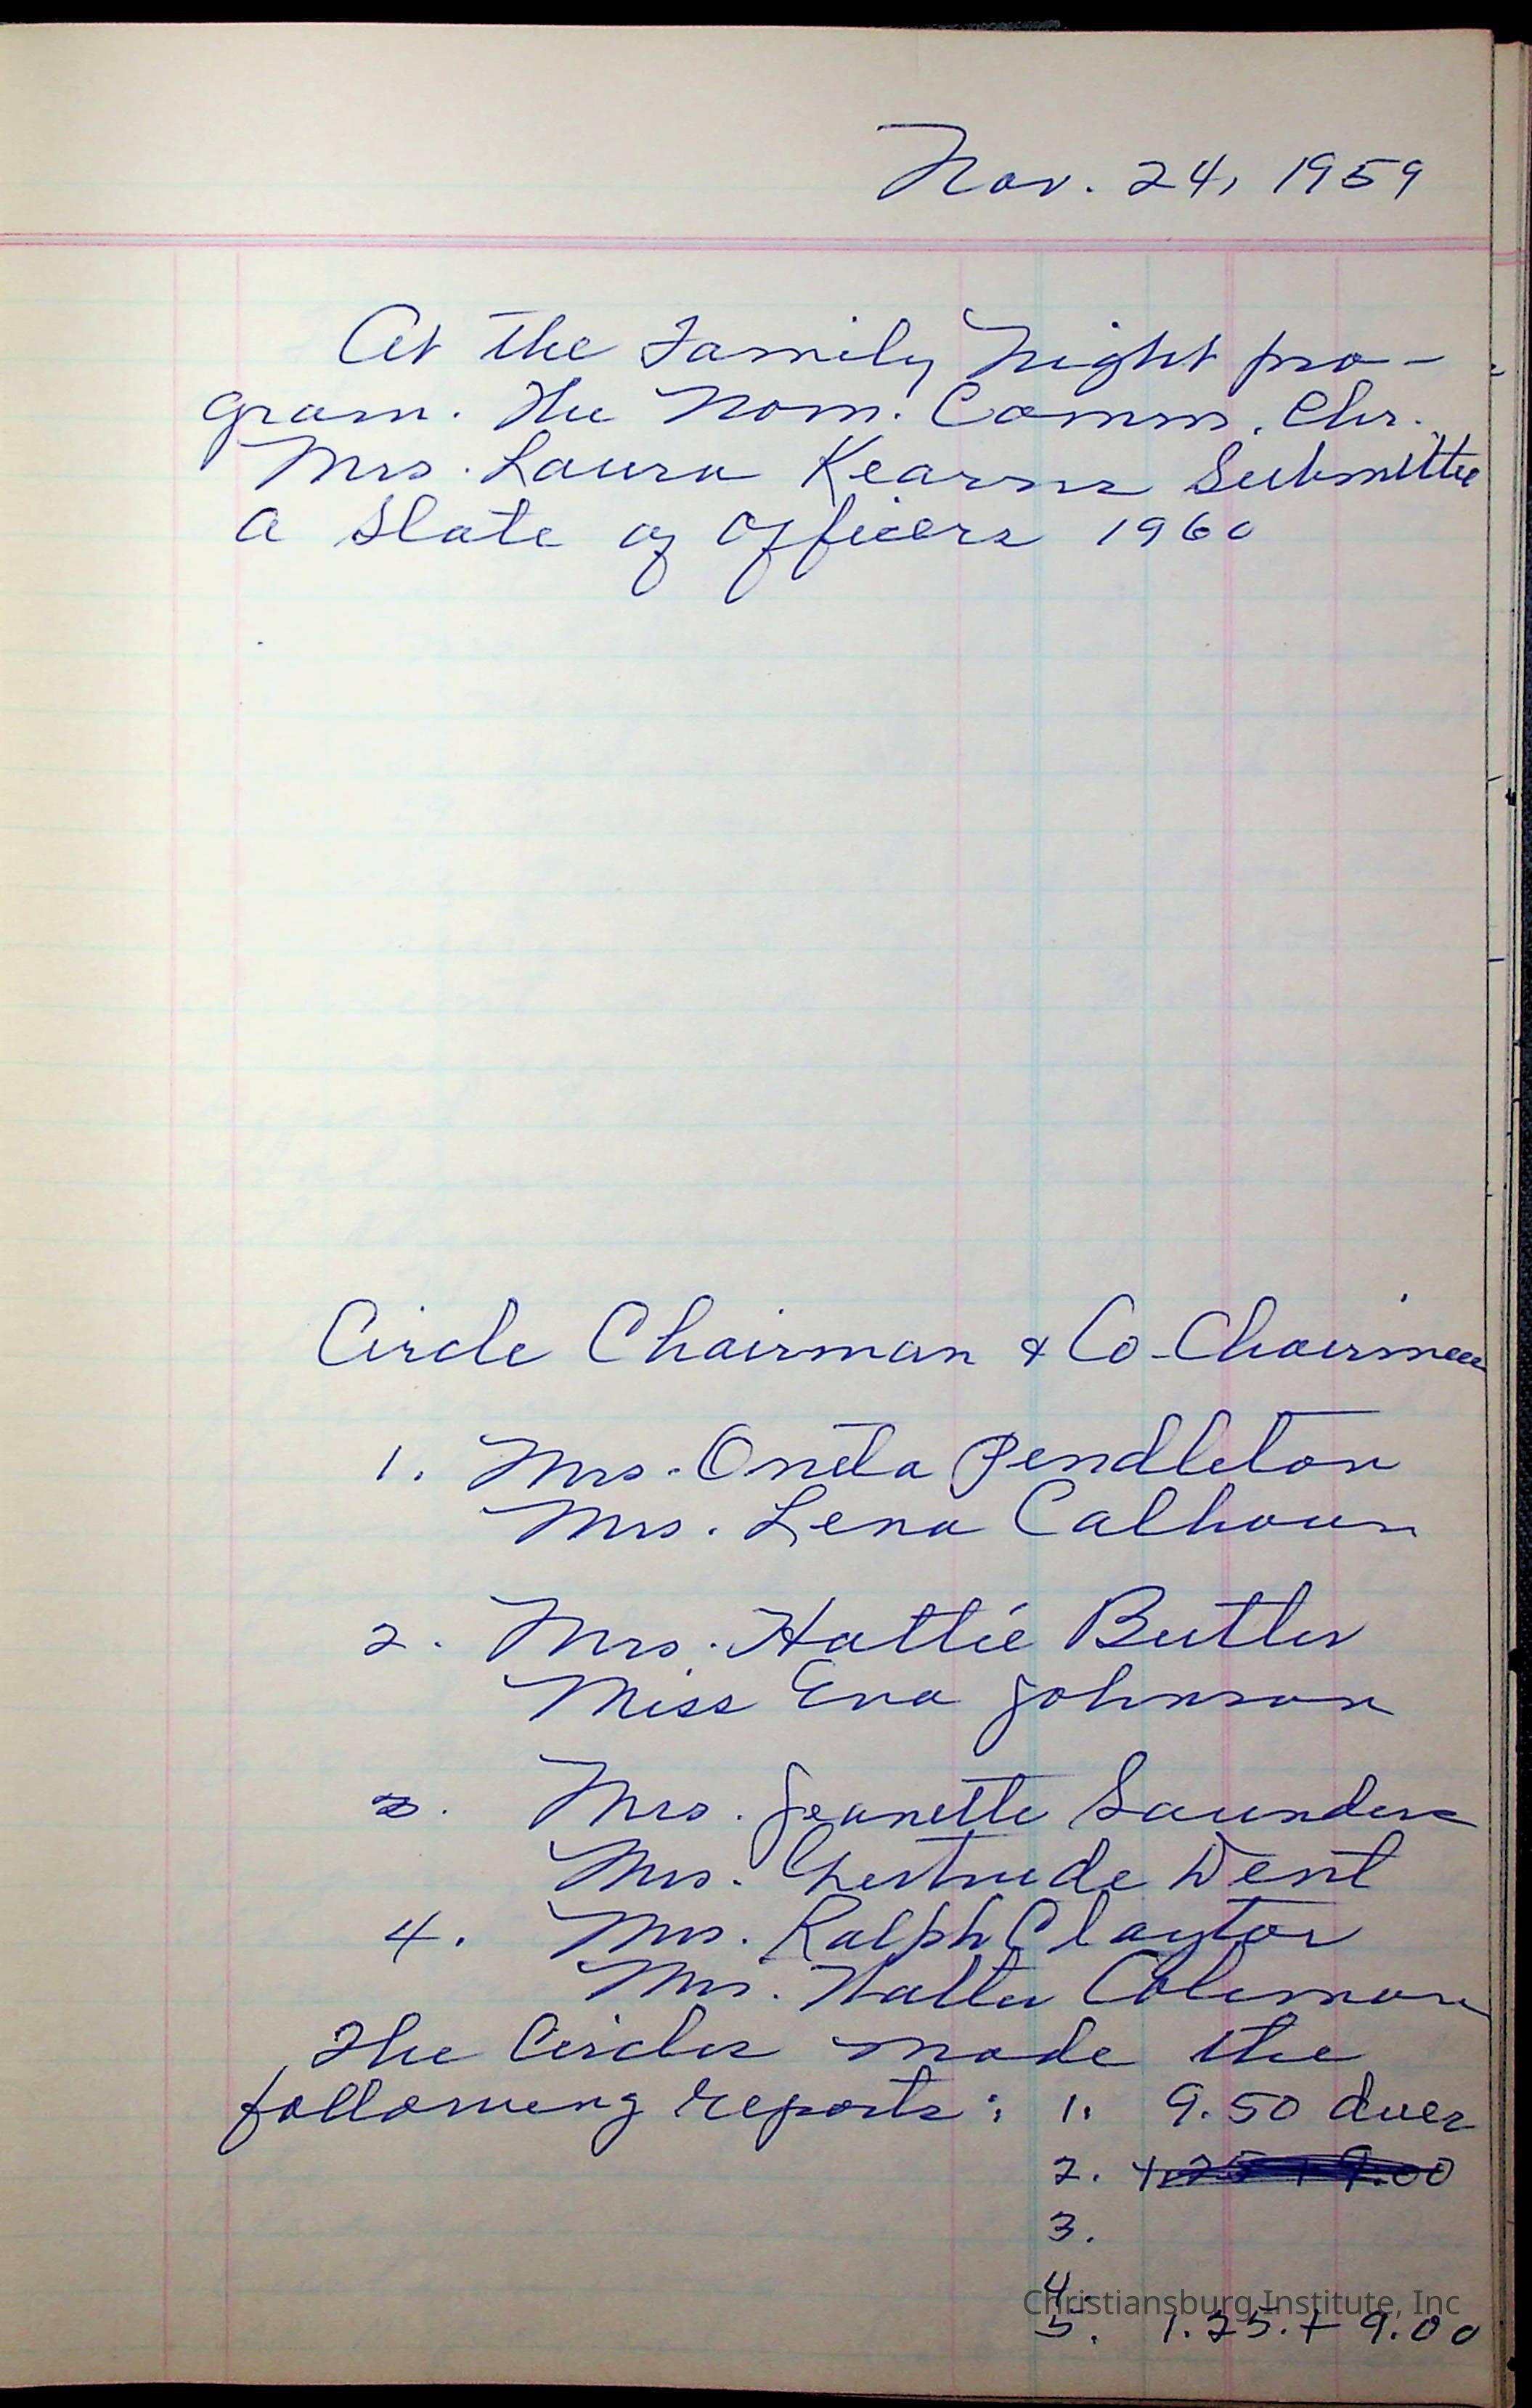 Nov. 24, 1959
At the Family Night pro-
gram. The Nom. Comm. Chr.
Mrs. Laura Kearns Submitte
a Slate of Officers 1960
Circle Chairman & Co-Chairmen
1. Mrs. Oneta Pendleton
Mrs. Lena Calhoun
2. Mrs. Hattie Butler
Miss Eva Johnson
3. Mrs. Jeanette Saunders
Mrs. Gertrude Dent
4. Mrs. Ralph Claytor
Mrs. Walter Coleman
The Circles made the
following reports: 1. 9.50 dues
2.
3.
4.
Christiansburg Institute, Inc
5. 1.25. + 9.00